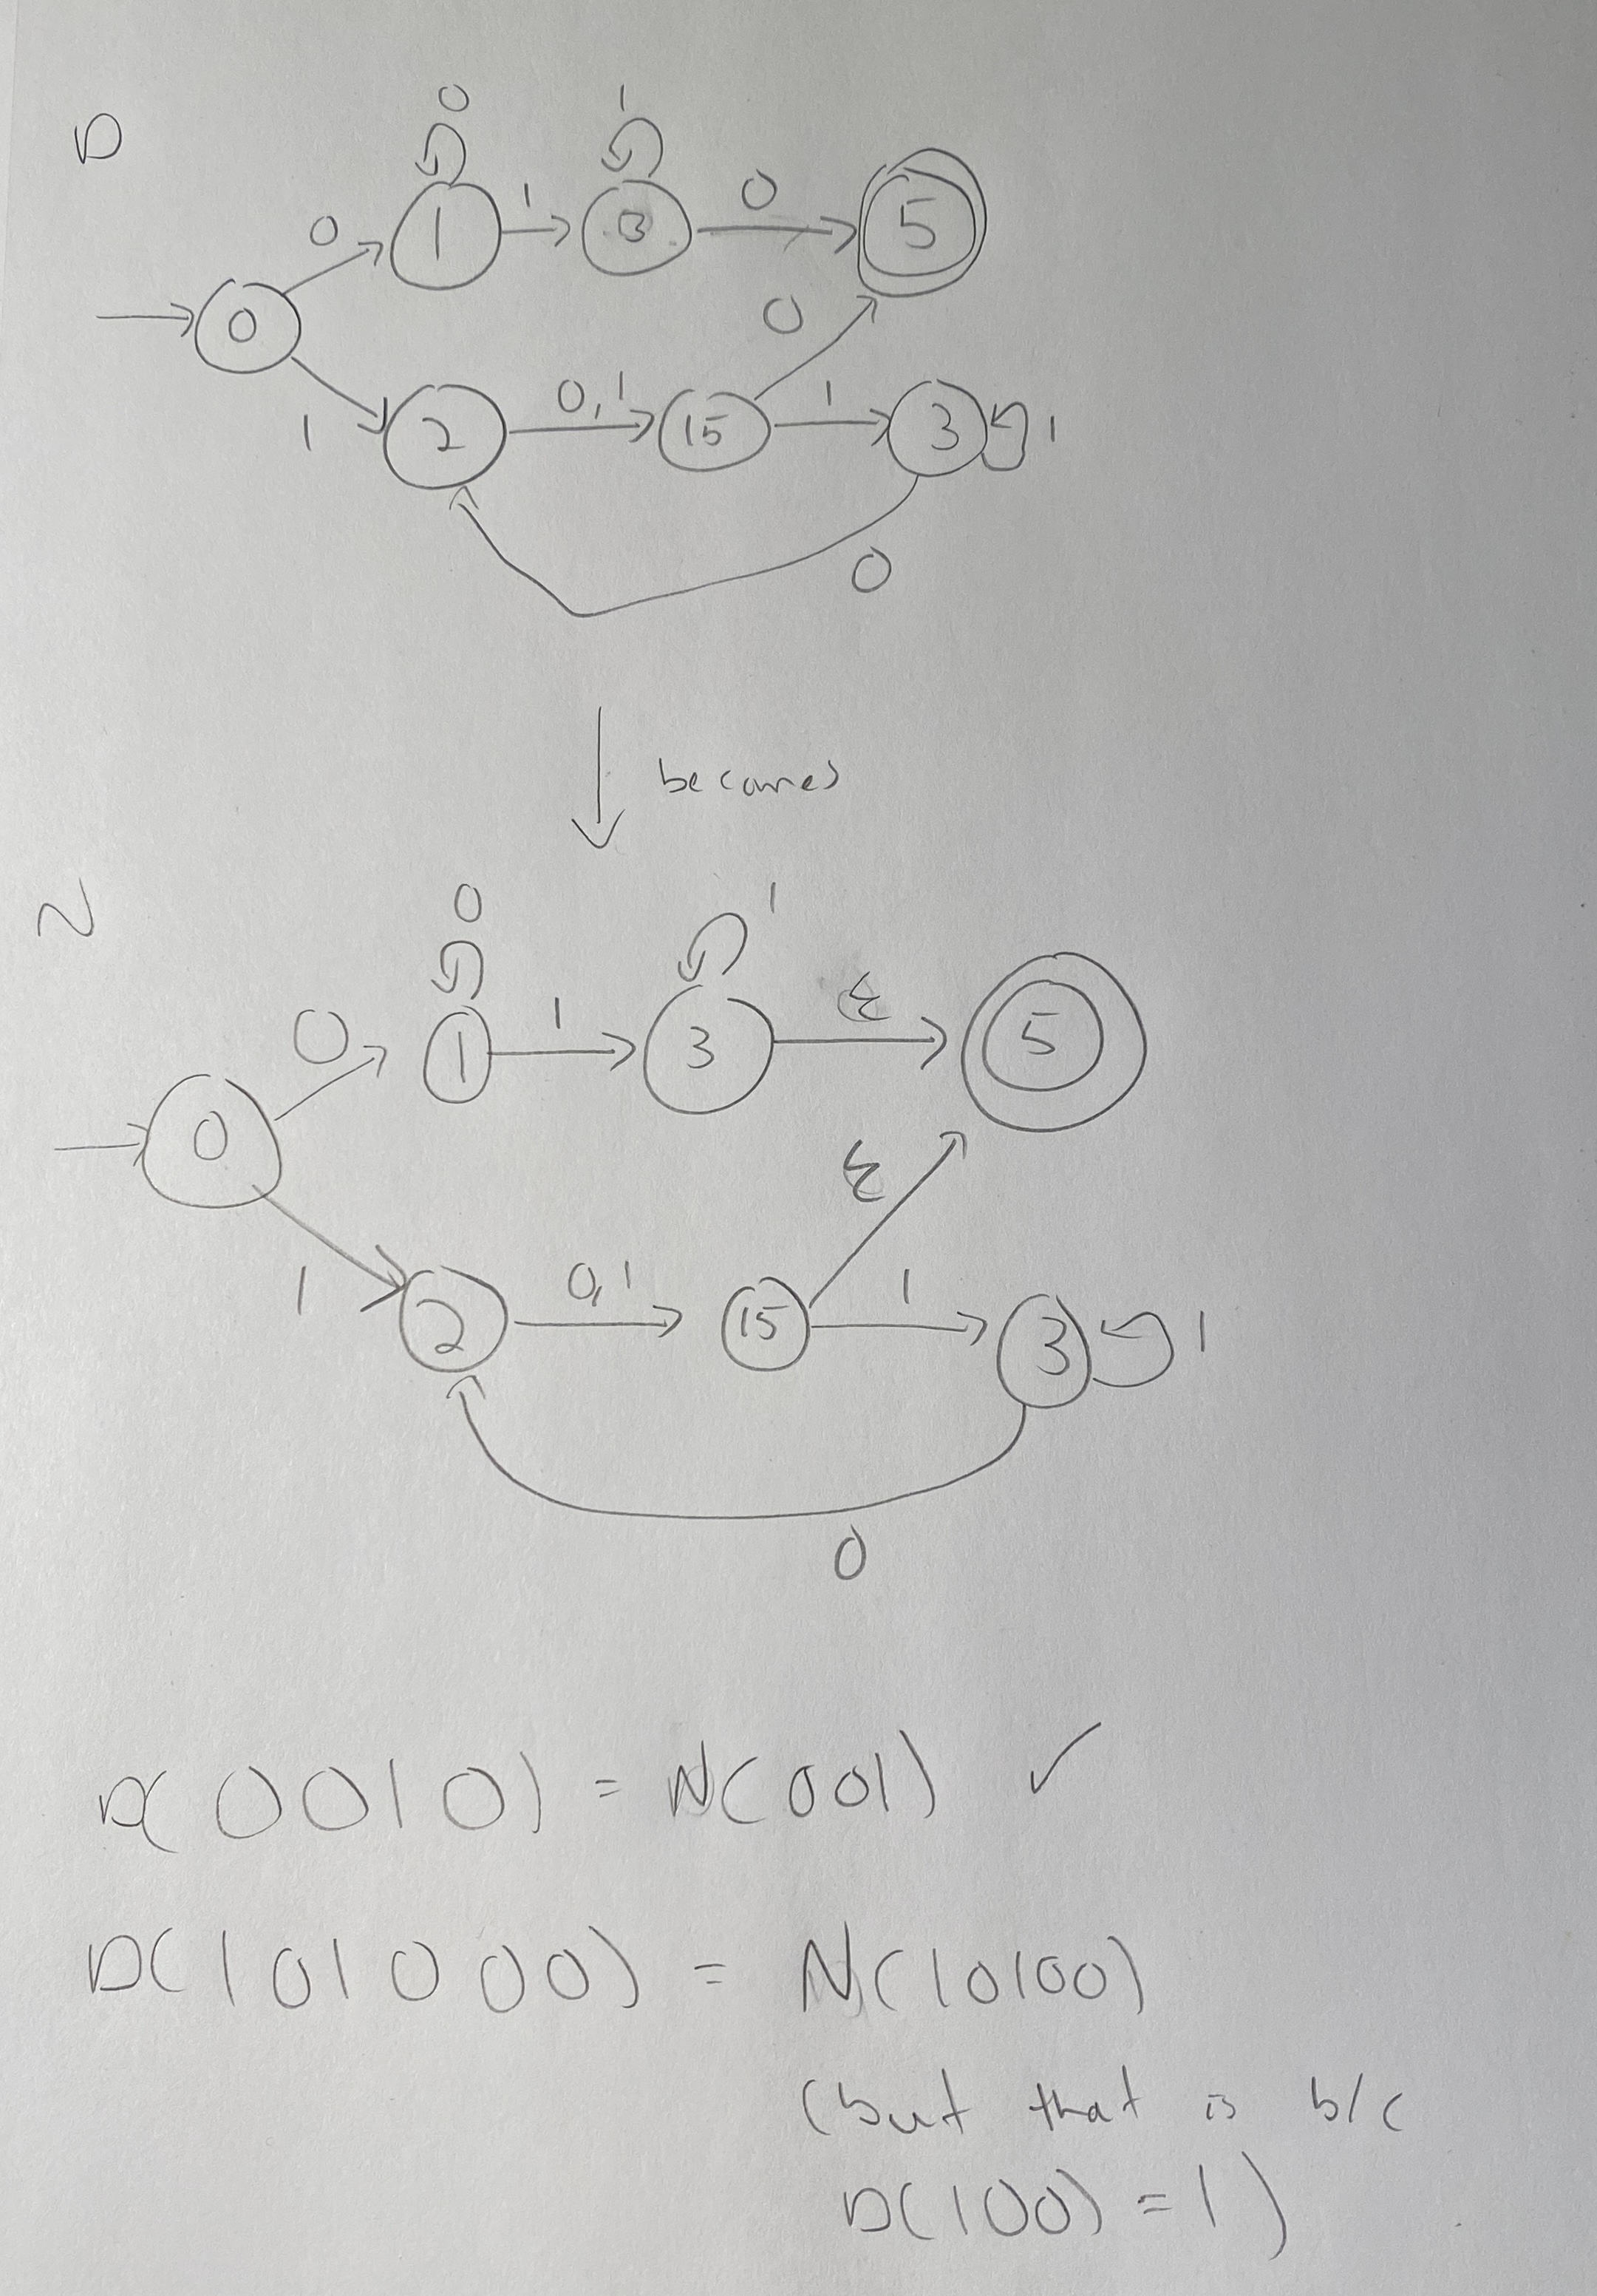 D
0 1
0 1 1 3 0 5
0 0
1 2 0,1 15 1 3 1
0
becomes
N
0 1
0 1 1 3 ε 5
0 ε
1 2 0,1 15 1 3 1
0
D(0010) = N(001) ✓
D(101000) = N(10100)
(but that is b/c
D(100) = 1)